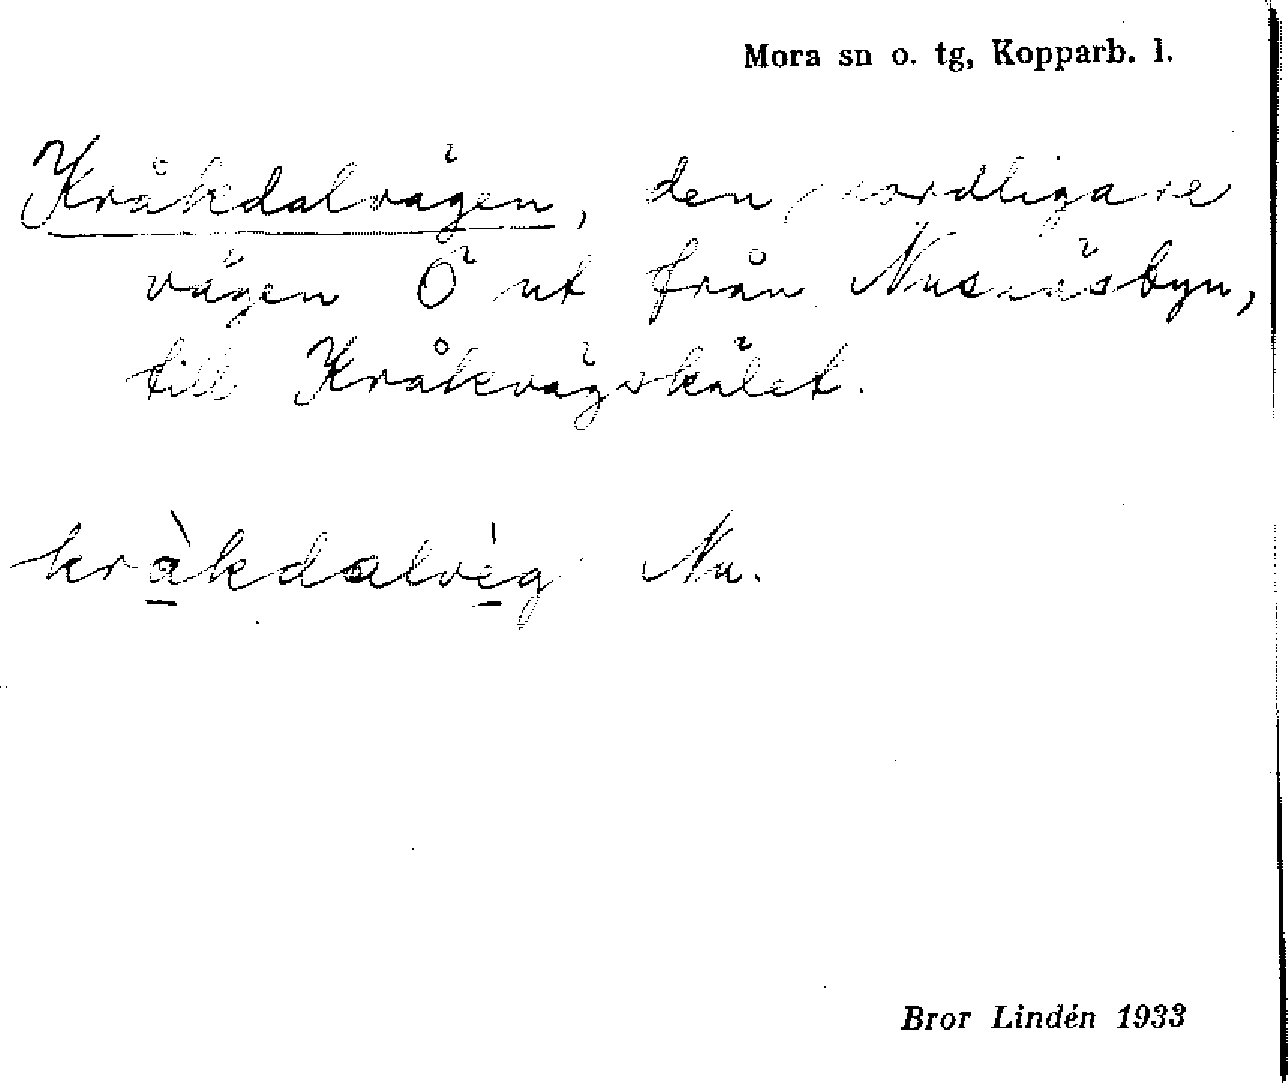 Mora sn o. tg, Kopparb. l.
Kråkdalvägen, den nordligare
vägen Ö ut från Nusnäsbyn,
till Kråkvägskälet.
kràkdalvèg Nu.
Bror Lindén 1933